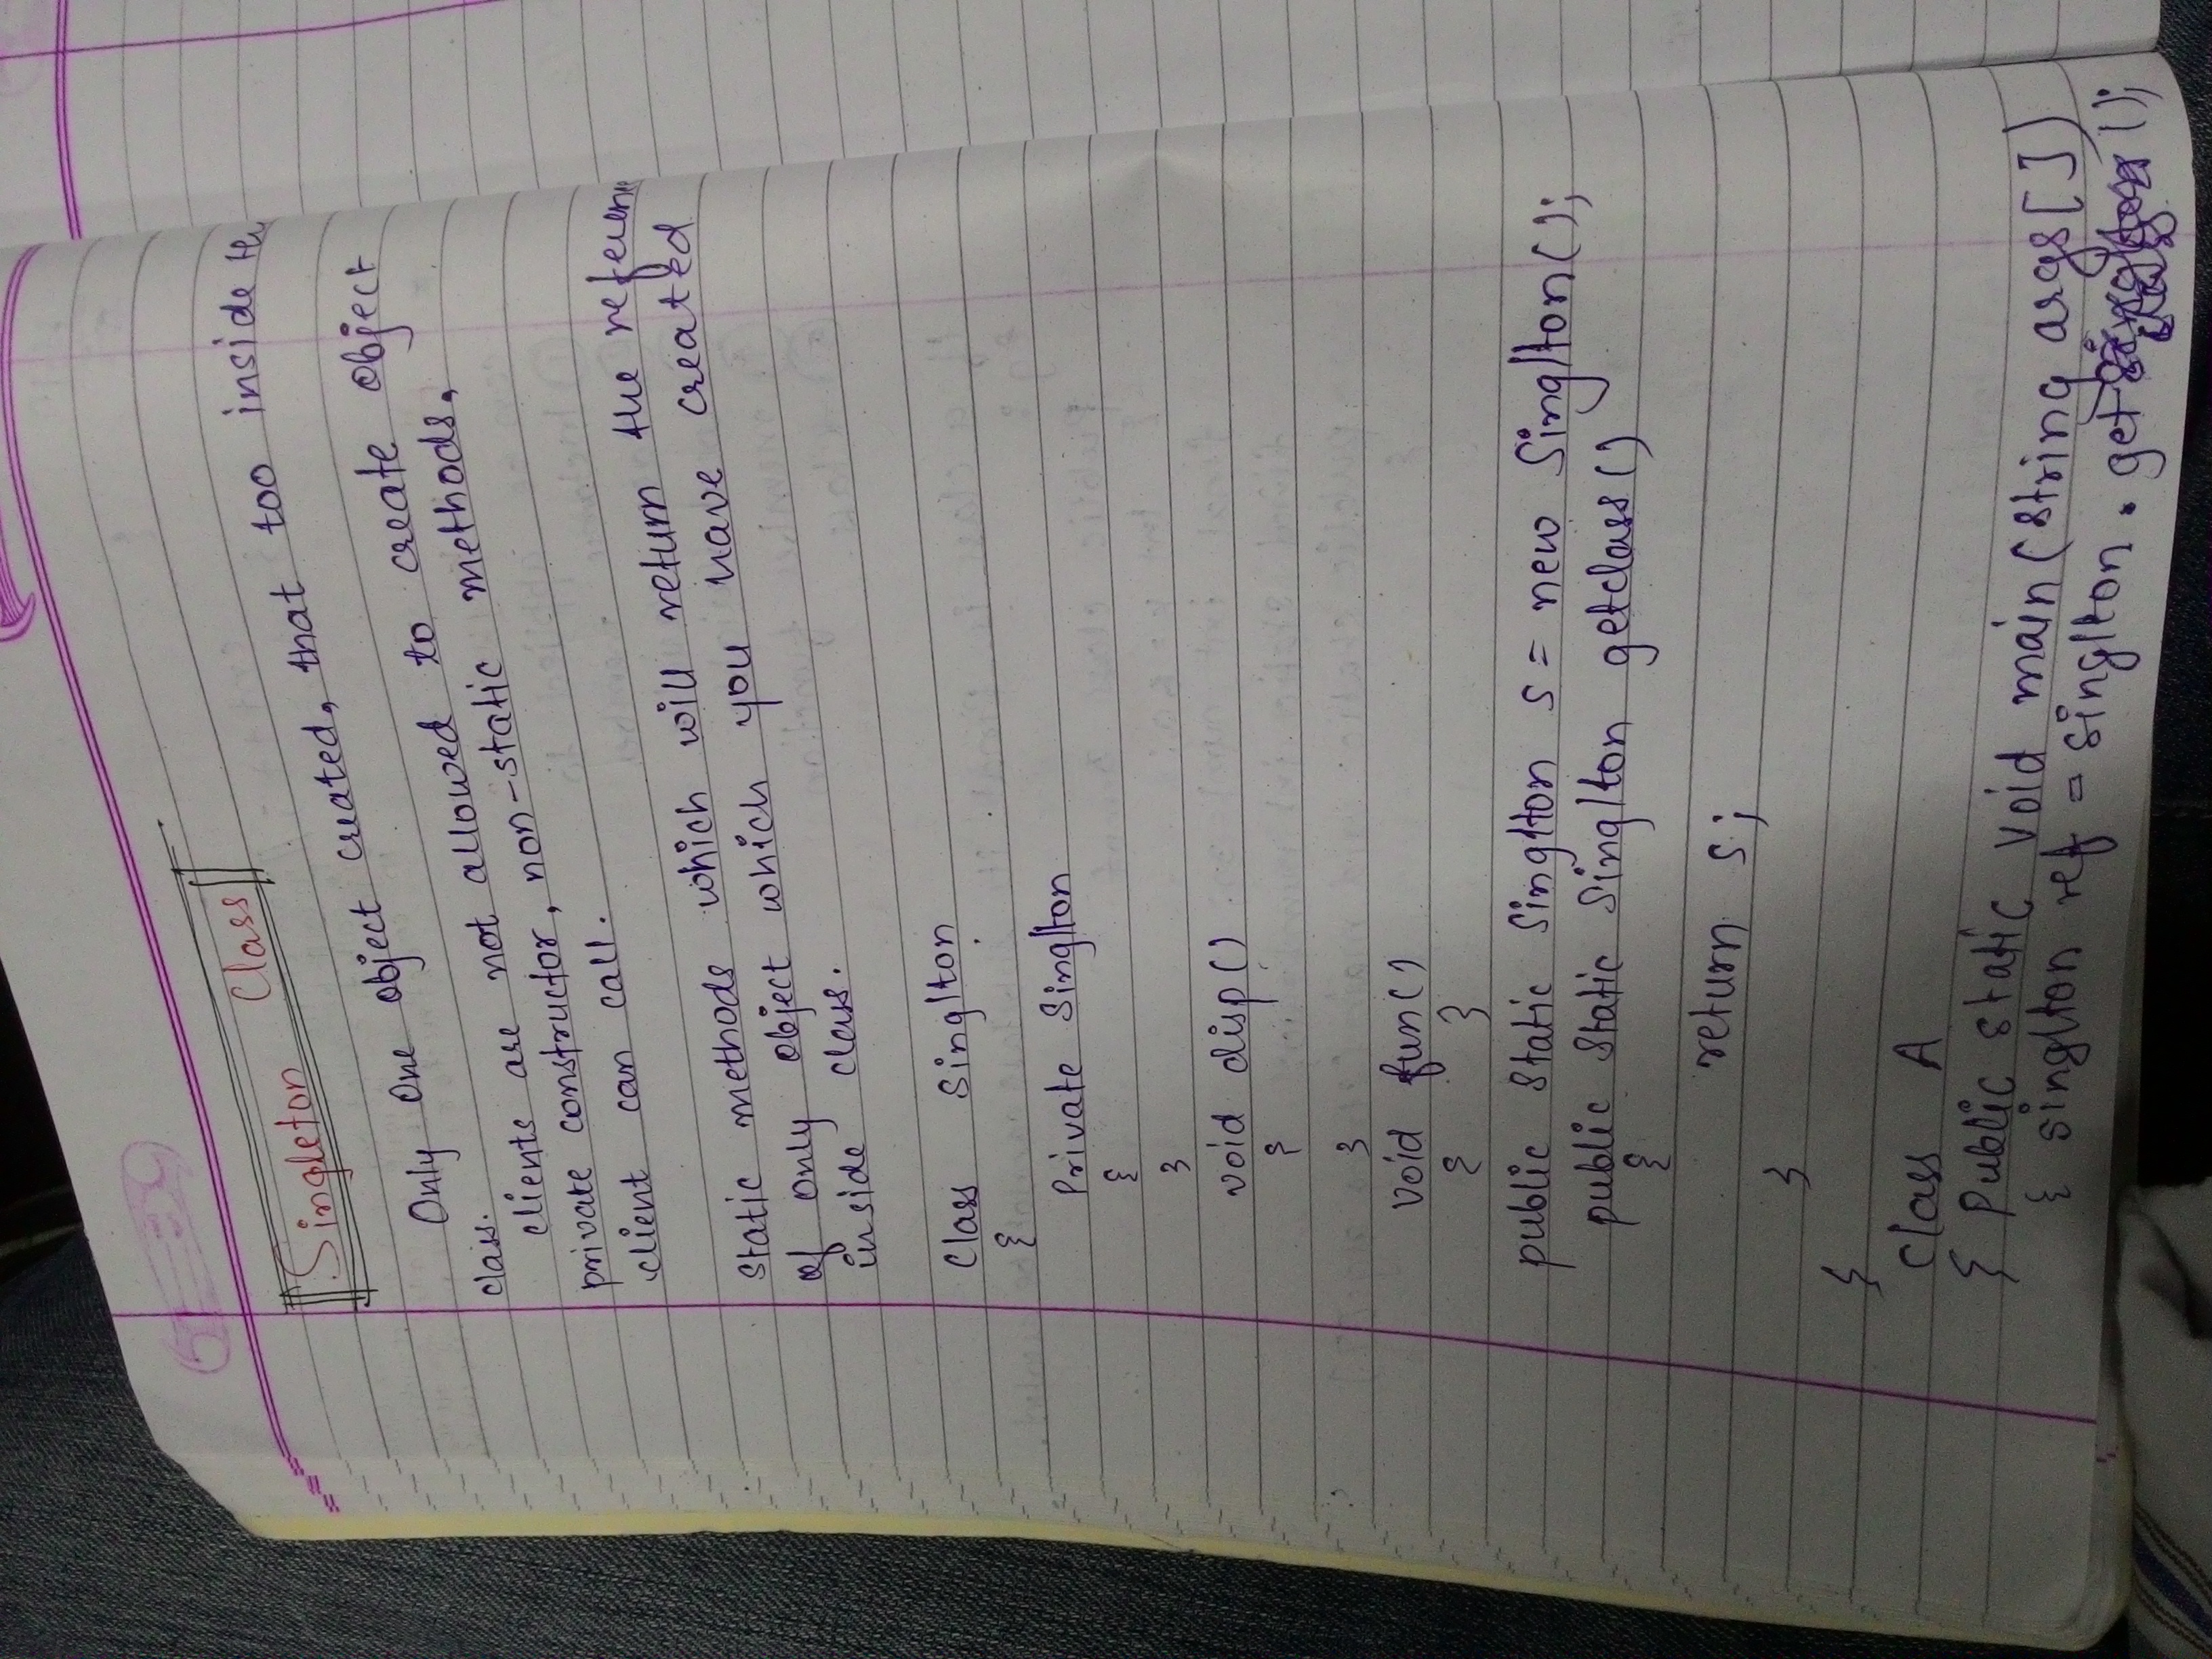 Singleton Class
Only One object created, that too inside the
class.
clients are not allowed to create object
private constructor, non-static methods,
client can call.
static methods which will return the reference
of only object which you have created
inside class.
Class Singlton
{
Private Singlton
{
}
void disp()
{
}
void fun()
{ }
public static Singlton s = new Singlton();
public static Singlton getclass()
{
return s;
}
}
Class A
{ Public static void main(string args[])
{ singlton ref = singlton.getclass();